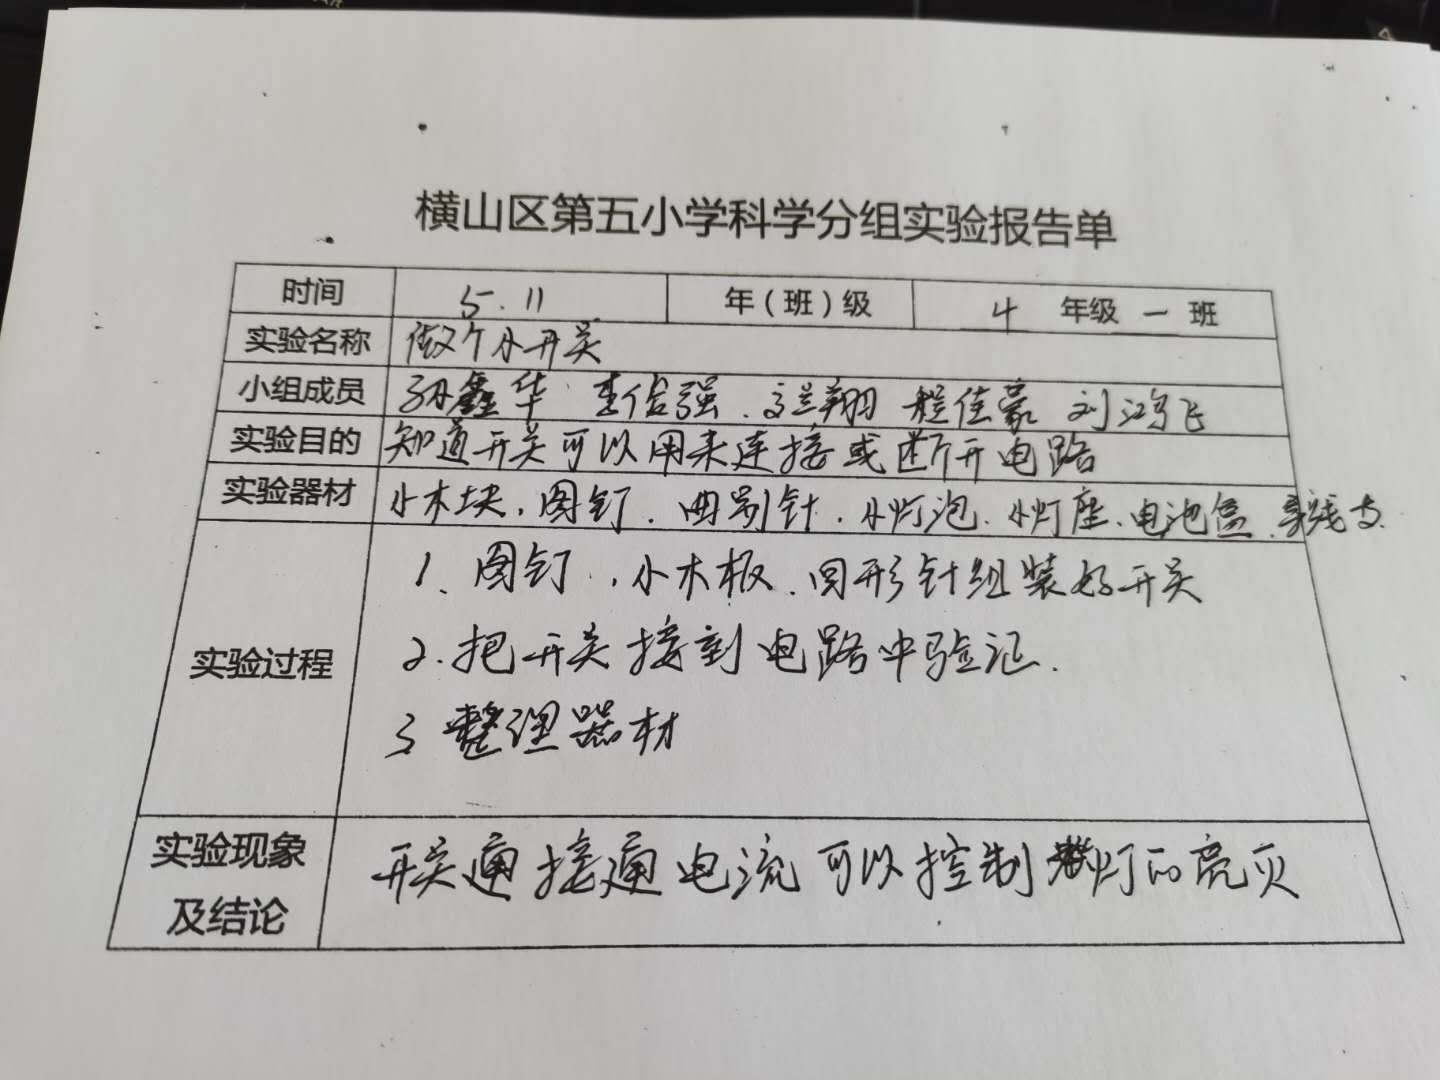 横山区第五小学科学分组实验报告单
时间 5.11 年（班）级 4 年级 一 班
实验名称 做个小开关
小组成员 孙鑫华 李信强 高兰翔 程佳豪 刘鸿飞
实验目的 知道开关可以用来连接或断开电路
实验器材 小木块、图钉、曲别针、小灯泡、小灯座、电池盒、导线等
实验过程
1、图钉、小木板、回形针组装好开关
2、把开关接到电路中验证.
3 整理器材
实验现象及结论 开关通接通电流可以控制灯的亮灭